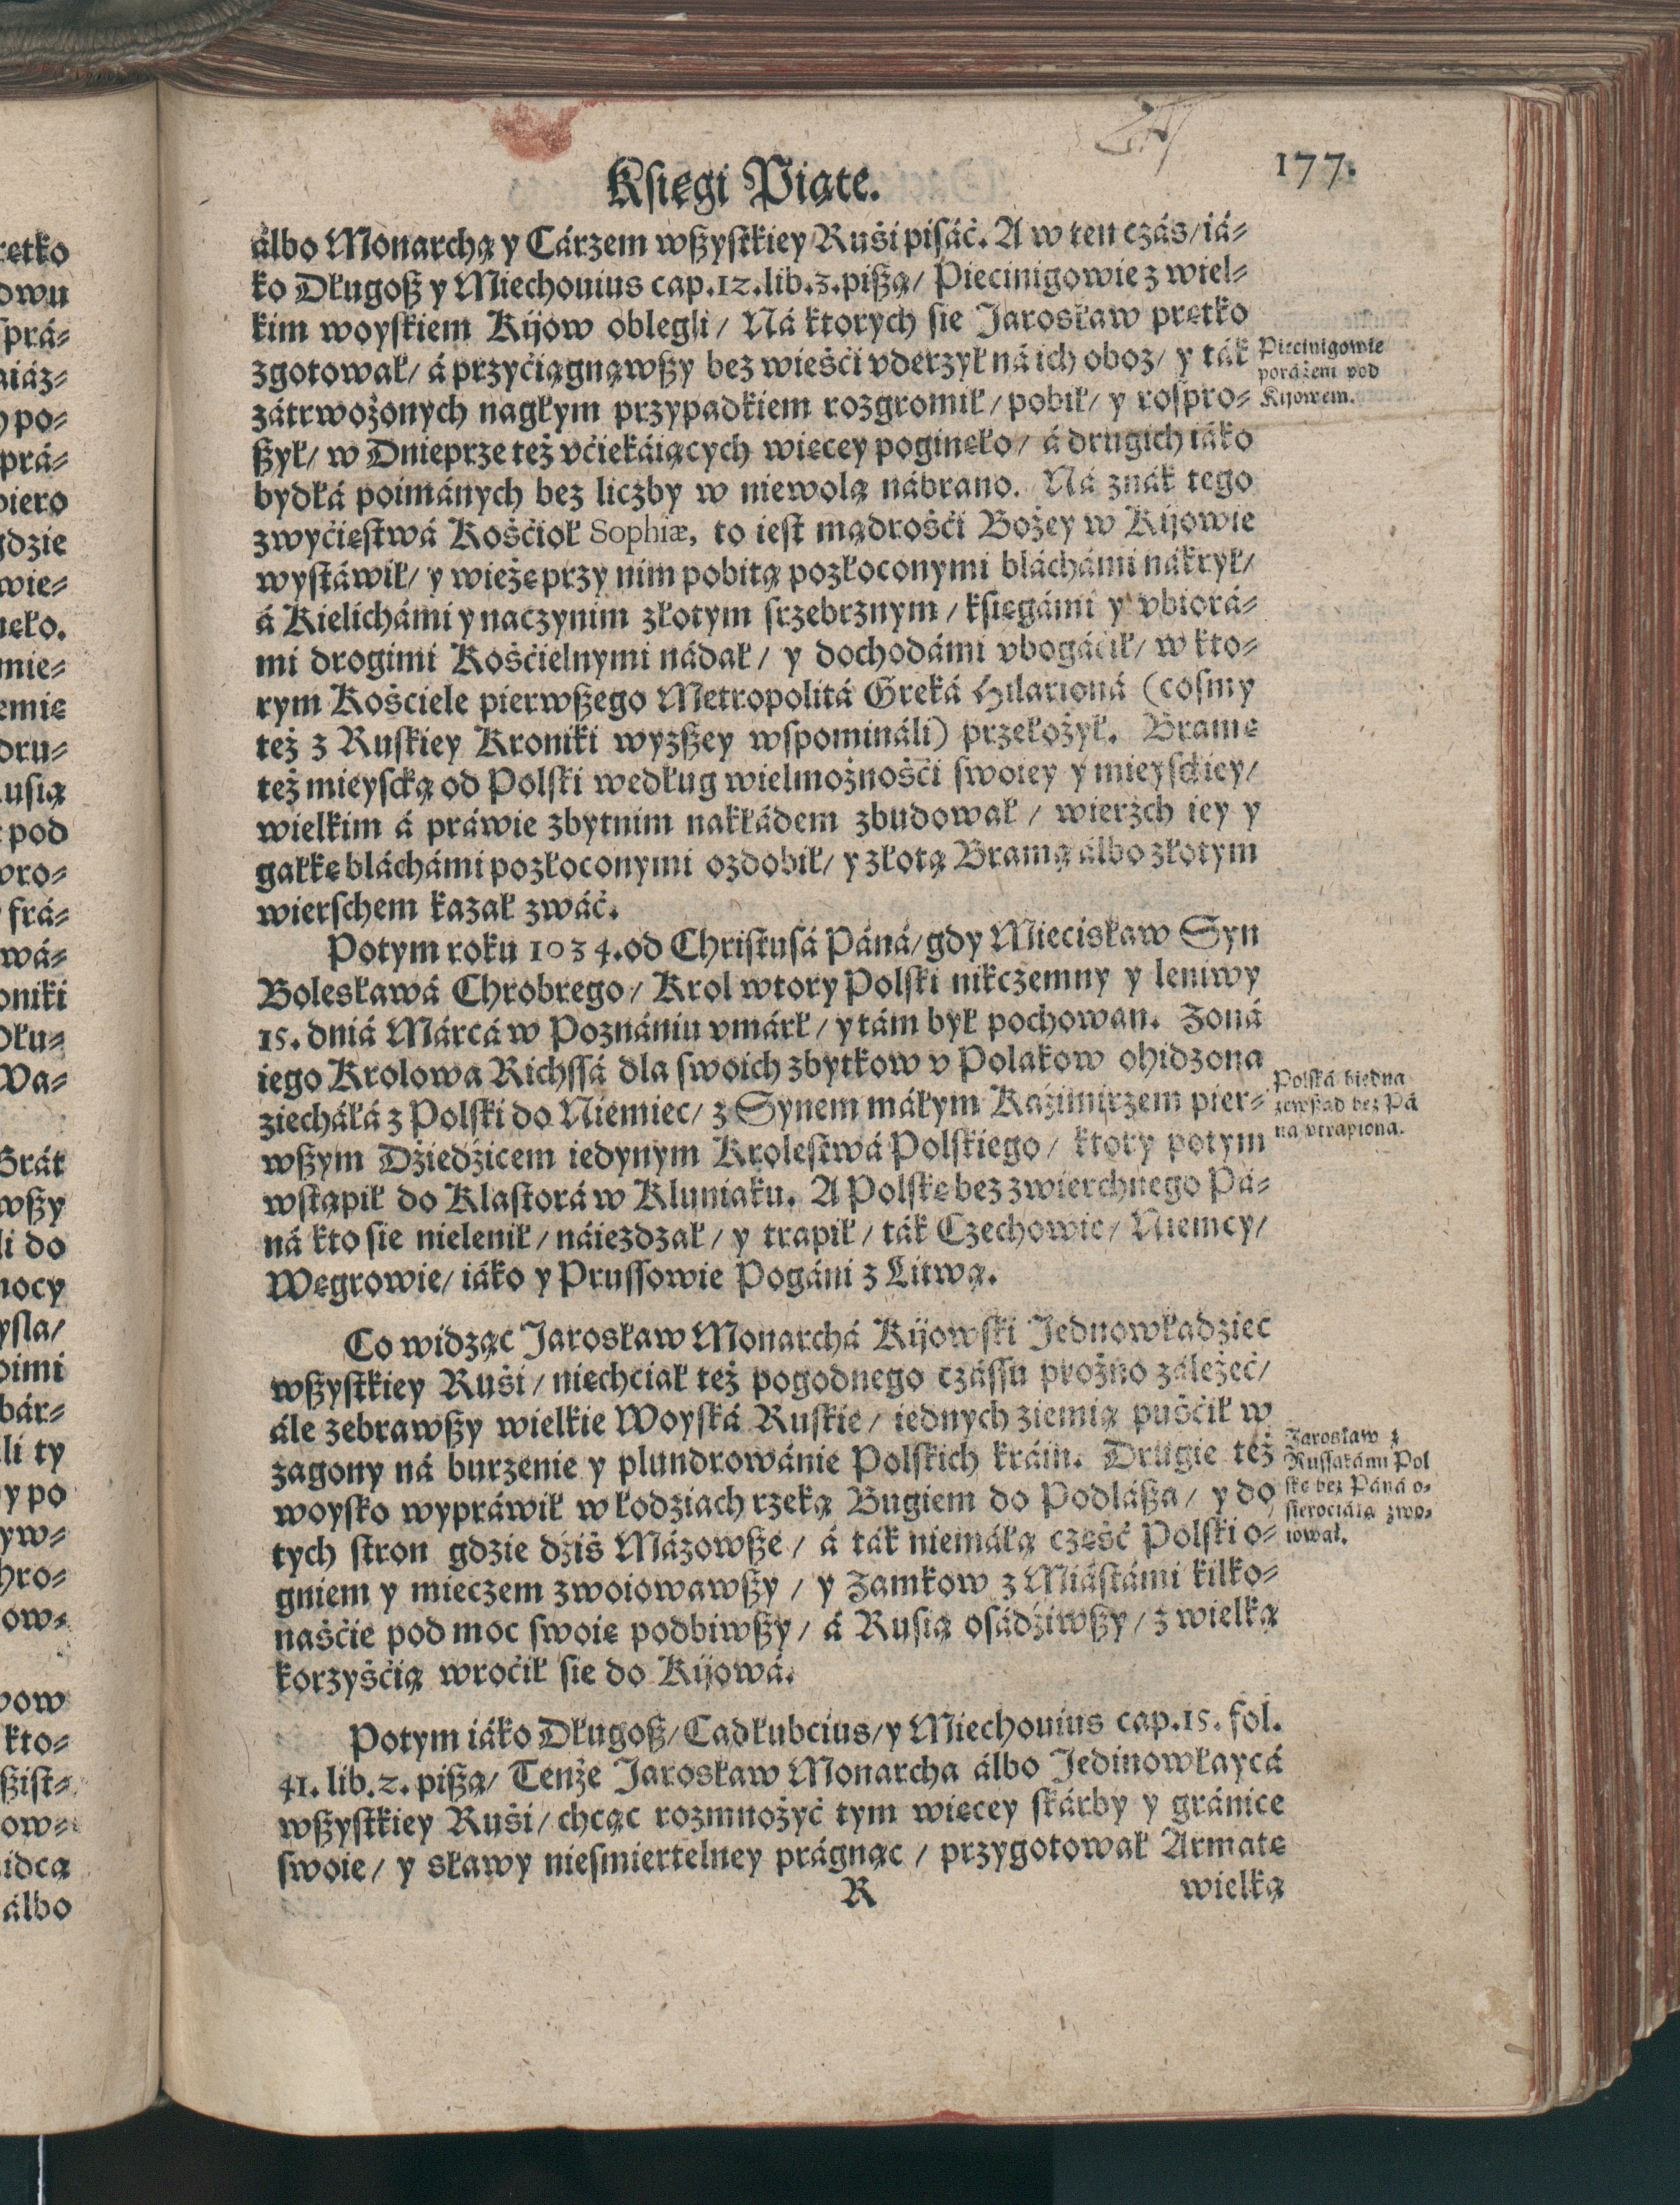 retko
owu
sprá⸗
aiáz⸗
y po⸗
prá⸗
piero
gdzie
wie⸗
neło.
mie⸗
emię
dru⸗
usią
pod
wro⸗
frá⸗
wá⸗
oniki
Dłu⸗
Wa⸗
Brát
wßy
li do
mocy
ysla/
oimi
bár⸗
li ty
y po
yw⸗
hro⸗
ow⸗
pow
kto⸗
ßist⸗
ow⸗
idcą
álbo
Księgi Piąte.
177.
álbo Monarchą y Cárzem wßystkiey Ruśi pisáć. A w ten czás/ iá⸗
ko Długoß y Miechouius cap. 12. lib. 3. pißą/ Piecinigowie z wiel⸗
kim woyskiem Kijow oblegli/ Ná ktorych sie Jarosław prętko
zgotował/ á przyćiągnąwßy bez wieśći vderzył ná ich oboz/ y ták
zátrwożonych nagłym przypadkiem rozgromił/ pobił/ y rospro⸗
ßył/ w Dnieprze też vćiekáiących więcey poginęło/ á drugich iáko
bydłá poimánych bez liczby w niewolą nábrano. Ná znák tego
zwyćięstwá Kośćioł Sophiæ, to iest mądrośći Bożey w Kijowie
wystáwił/ y wieżę przy nim pobitą pozłoconymi bláchámi nákrył/
á Kielichámi y naczynim złotym srzebrznym/ księgámi y vbiorá⸗
mi drogimi Kośćielnymi nádał/ y dochodámi vbogáćił/ w kto⸗
rym Kośćiele pierwßego Metropolitá Greká Hilarioná (cosmy
też z Ruskiey Kroniki wyzßey wspomináli) przełożył. Bramę
też mieyscką od Polski według wielmożnośći swoiey y mieysckiey/
wielkim á práwie zbytnim nakłádem zbudował/ wierżch iey y
gałkę bláchámi pozłoconymi ozdobił/ y złotą Bramą álbo złotym
wierschem kazał zwáć.
Potym roku 1034. od Christusá Páná/ gdy Miecisław Syn
Bolesławá Chrobrego/ Krol wtory Polski nikczemny y leniwy
15. dniá Márcá w Poznániu vmárł/ y tám był pochowan. Żoná
iego Krolowa Richssá dla swoich zbytkow v Polakow ohidzona
ziecháłá z Polski do Niemiec/ z Synem máłym Kaźimirzem pier⸗
wßym Dżiedźicem iedynym Krolestwá Polskiego/ ktory potym
wstąpił do Klastorá w Kluniaku. A Polskę bez zwierchnego Pá⸗
ná kto sie nielenił/ náiezdzał/ y trapił/ ták Czechowie/ Niemcy/
Węgrowie/ iáko y Prussowie Pogáni z Litwą.
Co widząc Jarosław Monarchá Kijowski Jednowładziec
wßystkiey Ruśi/ niechciał też pogodnego czássu prożno záleżeć/
ále zebrawßy wielkie Woyská Ruskie/ iednych ziemią puśćił w
zagony ná burzenie y plundrowánie Polskich kráin. Drugie też
woysko wypráwił w łodziach rzeką Bugiem do Podláßa/ y do
tych stron gdzie dźiś Mázowße/ á ták niemáłą część Polski o⸗
gniem y mieczem zwoiowawßy/ y Zamkow z Miástámi kilko⸗
naśćie pod moc swoię podbiwßy/ á Rusią osádźiwßy/ z wielką
korzyśćią wroćił sie do Kijowá.
Potym iáko Długoß/ Cadłubcius/ y Miechouius cap. 15. fol.
41. lib. 2. pißą/ Tenże Jarosław Monarcha álbo Jedinowłaycá
wßystkiey Ruśi/ chcąc rozmnożyć tym więcey skárby y gránice
swoie/ y sławy niesmiertelney prágnąc/ przygotował Armatę
R
wielką
Piecinigowie
poráżeni pod
Kijowem.
Polská biedna
zewßąd bez Pá
ná vtrapiona.
Jarosław z
Russakámi Pol
skę bez Páná o⸗
sierociáłą zwo⸗
iował.